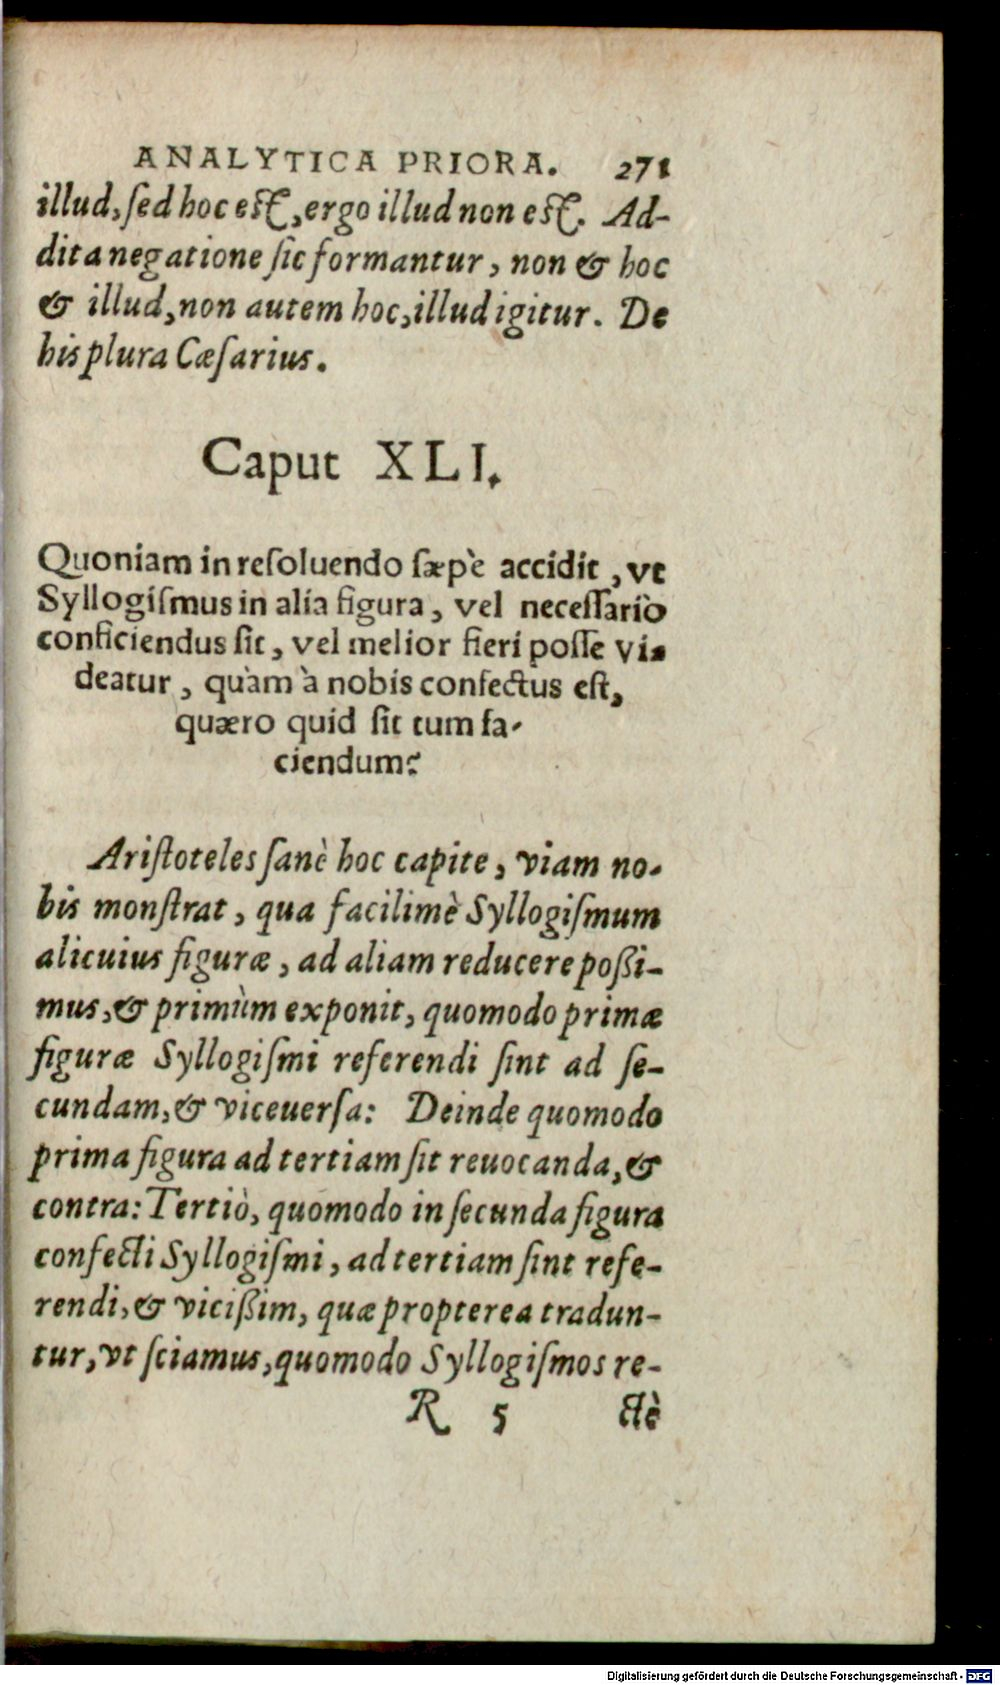 ANALYTICA PRIORA. 271
illud, ſed hoc eſt, ergo illud non eſt. Ad-
dita negatione ſic formantur, non & hoc
& illud, non autem hoc, illud igitur. De
his plura Cæſarius.
Caput XLI.
Quoniam in reſoluendo ſæpè accidit, vt
Syllogiſmus in alia figura, vel neceſſariò
conficiendus ſit, vel melior fieri poſſe vi-
deatur, quàm à nobis confectus eſt,
quæro quid ſit tum fa-
ciendum?
Ariſtoteles ſanè hoc capite, viam no-
bis monſtrat, qua facilimè Syllogiſmum
alicuius figuræ, ad aliam reducere poßi-
mus, & primùm exponit, quomodo primæ
figuræ Syllogiſmi referendi ſint ad ſe-
cundam, & viceuerſa: Deinde quomodo
prima figura ad tertiam ſit reuocanda, &
contra: Tertiò, quomodo in ſecunda figura
confecti Syllogiſmi, ad tertiam ſint refe-
rendi, & vicißim, quæ propterea tradun-
tur, vt ſciamus, quomodo Syllogiſmos re-
R 5 ctè
Digitalisierung gefördert durch die Deutsche Forschungsgemeinschaft - DFG